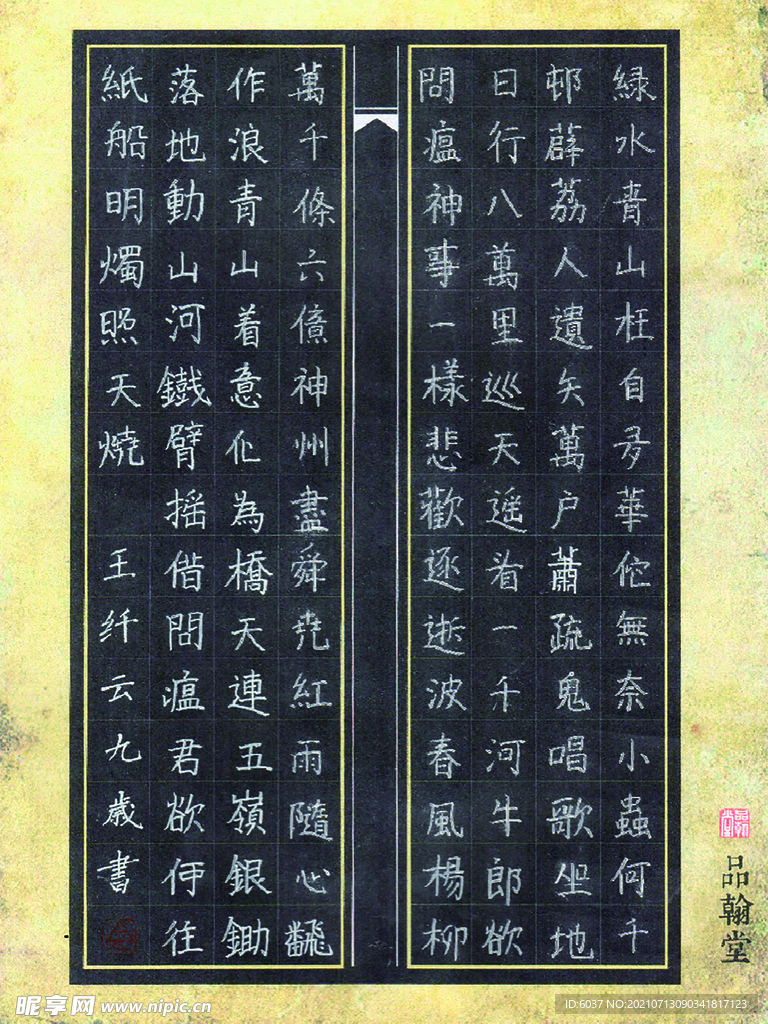 緑水青山枉自多華佗無奈小蟲何千
邨薜荔人遺矢萬户蕭疏鬼唱歌坐地
日行八萬里巡天遥看一千河牛郎欲
問瘟神事一樣悲歡逐逝波春風楊柳
萬千條六億神州盡舜堯紅雨隨心飜
作浪青山着意化為橋天連五嶺銀鋤
落地動山河鐵臂摇借問瘟君欲何往
紙船明燭照天燒 王纤云九歲書
品翰堂
昵享网 www.nipic.cn
ID:6037 NO:20210713090341817123